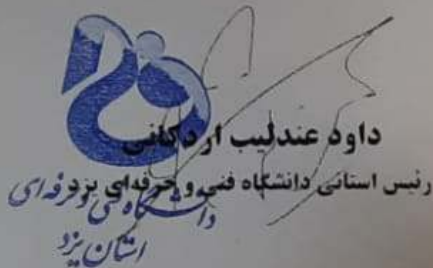 داود عندلیب اردکانی
رئیس استانی دانشگاه فنی و حرفه‌ای یزد
دانشگاه فنی و حرفه‌ای
استان یزد